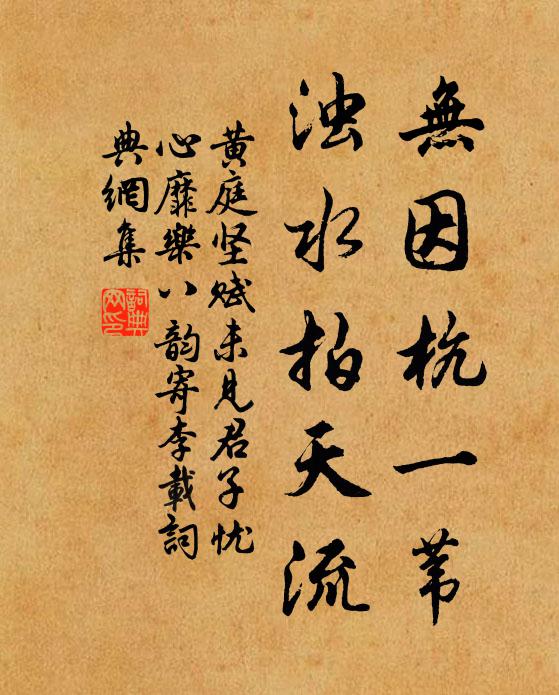 無因杭一苇
浊水拍天流
黄庭坚赋未見君子忧
心靡樂八韵寄李載詞
典網集
詞典
网印